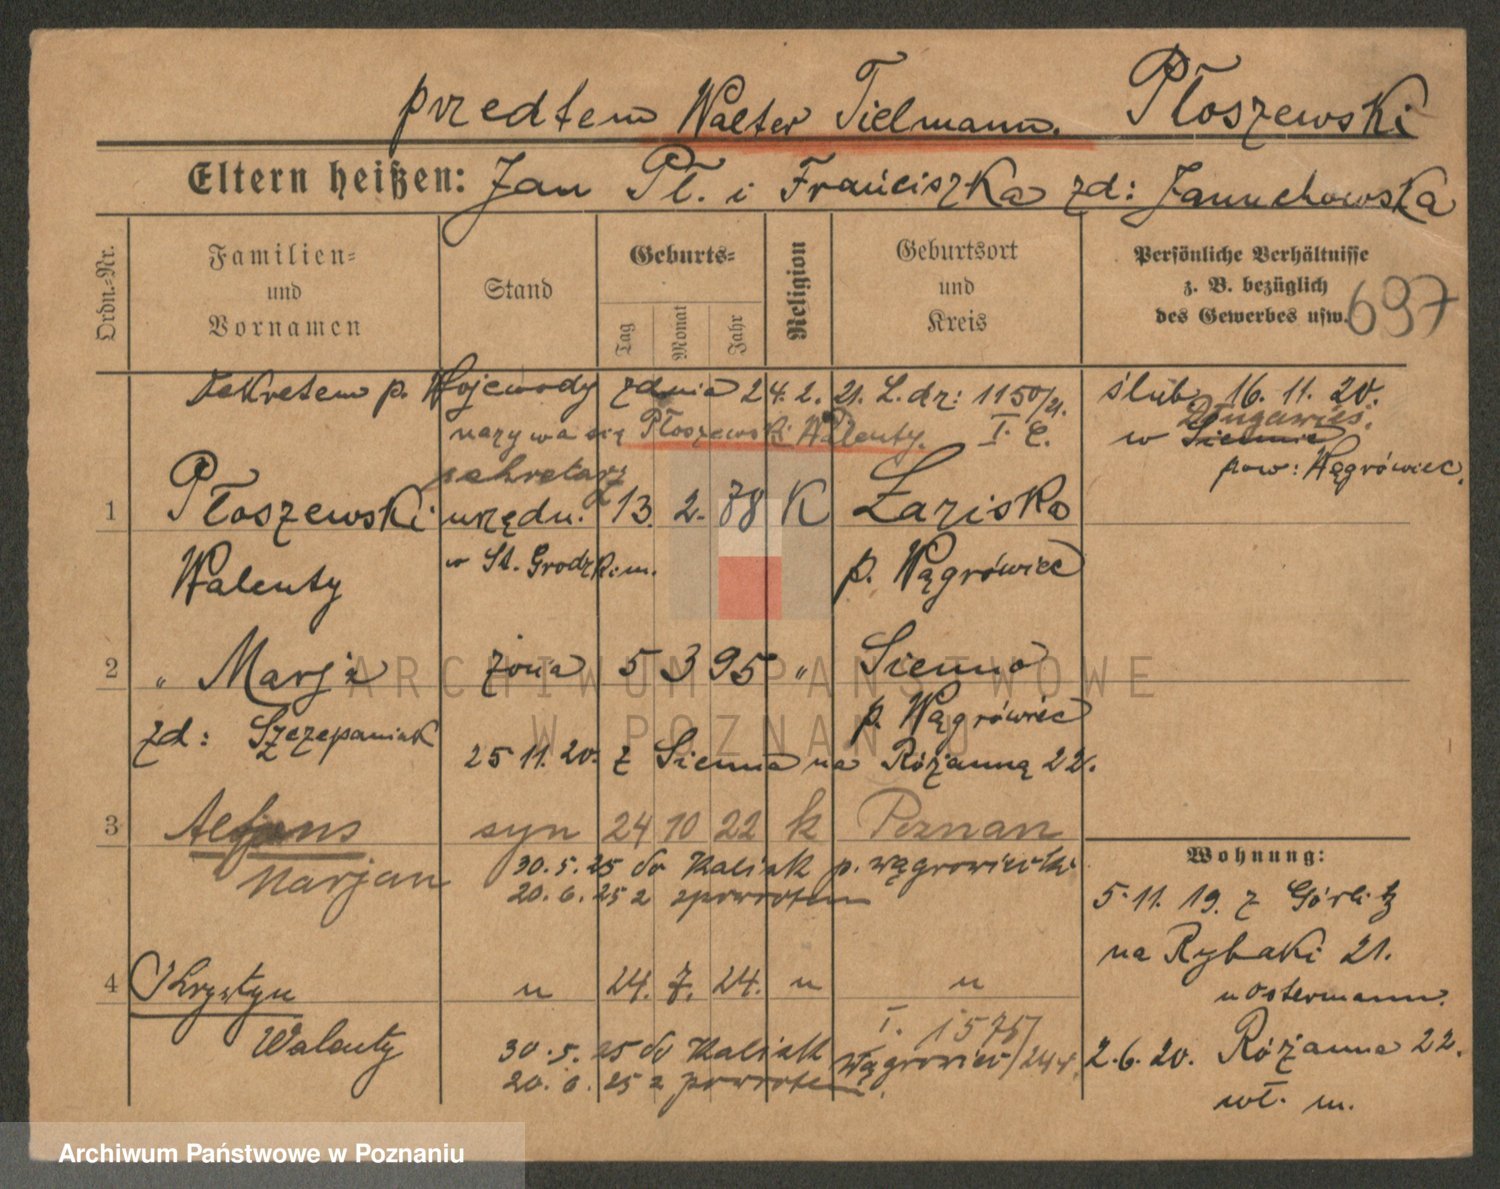 przedtem Walter Tielmann. Płoszewski
Eltern heißen: Jan Pł. i Franciszka zd: Januchowska
Ordn.-Nr.
Familien-
und
Vornamen
Stand
Geburts-
Tag
Monat
Jahr
Religion
Geburtsort
und
Kreis
Persönliche Verhältnisse
z. B. bezüglich
des Gewerbes usw.
697
Dekretem p. Wojewody zdnia 24. 2. 21. L. dz: 1150/21.
nazywa się Płoszewski Walenty. I. C.
ślub 16. 11. 20.
Długawieś.
w Siennie
pow: Wągrówiec.
sekretarz
1 Płoszewski urzędn. 13. 2. 78 K Łazisko
Walenty w St. Grodzkiem. p. Wągrówiec
2 „ Marja żona 5 3 95 „ Sienno
p. Wągrówiec
zd: Szczepaniak
25 11. 20. z Sienna na Różanną 22.
3 Alfons syn 24 10 22 k Poznan
Marjan 30. 5. 25 do Kaliak p. wągrowiecki
20. 6. 25 z zpowrotem
Wohnung:
5. 11. 19. z Görlitz
na Rybaki 21.
u Ostermann.
4 Krystyn " 24. 7. 24. " "
Walenty
I. 1575/
30. 5. 25 do Kaliak Wągrowiec/24r.
20. 6. 25 z powrotem.
2. 6. 20. Różanna 22.
wł. m.
ARCHIWUM PAŃSTWOWE
W POZNANIU
Archiwum Państwowe w Poznaniu